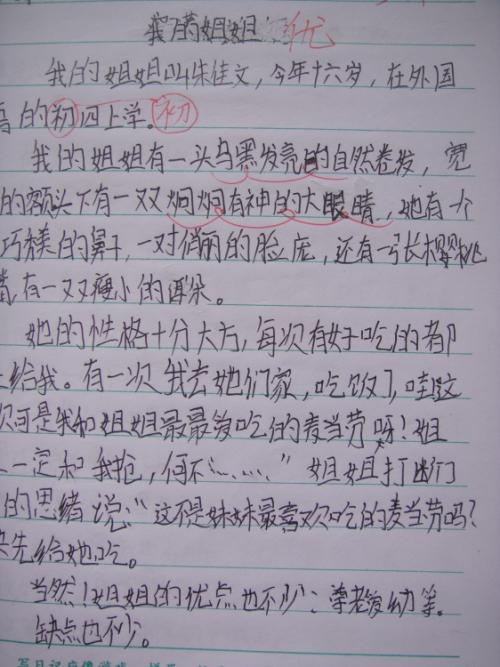 我的姐姐 优
我的姐姐叫朱佳文，今年十六岁，在外国
语的初四上学。初
我的姐姐有一头乌黑发亮的自然卷发，宽
的额头下有一双炯炯有神的大眼睛，她有一个
巧样的鼻子，一对俏丽的脸庞，还有一张樱桃
嘴，有一双瘦小的耳朵。
她的性格十分大方，每次有好吃的都
给我。有一次我去她们家，吃饭了，哇这
次可是我和姐姐最最爱吃的麦当劳呀！姐
一定和我抢，何不……”姐姐打断
的思绪说：“这不是妹妹最喜欢吃的麦当劳吗？
快先给她吃。
当然！姐姐的优点也不少：尊老爱幼等。
缺点也不少。